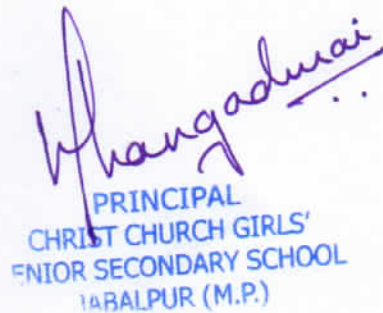 PRINCIPAL
CHRIST CHURCH GIRLS'
ENIOR SECONDARY SCHOOL
JABALPUR (M.P.)